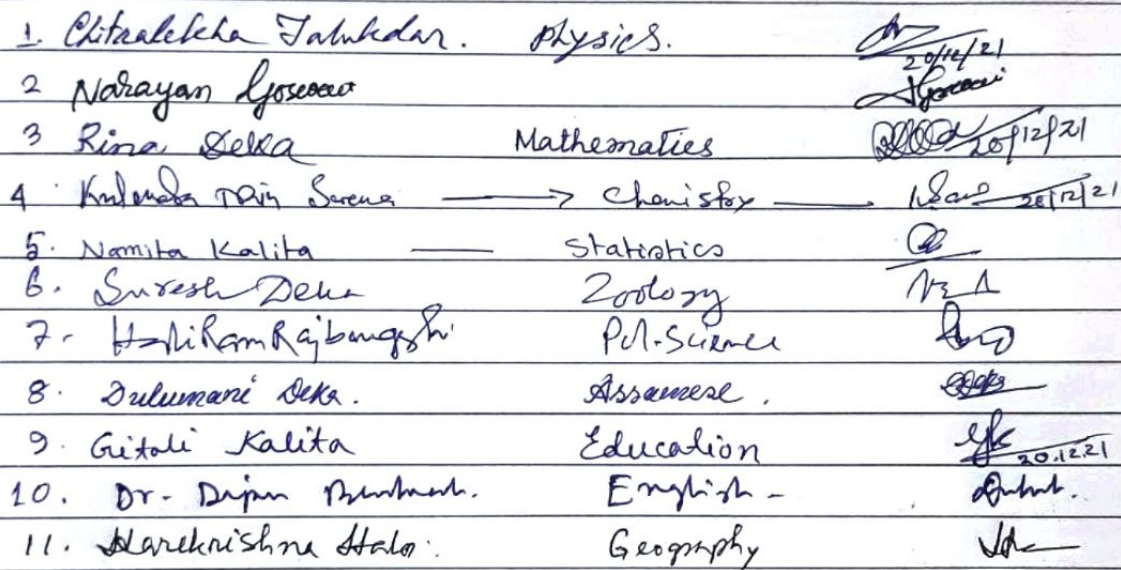 1. Chitralekha Talukdar. Physics. 20/12/21
2 Narayan Goswami Goswami
3 Rina Deka Mathematics 20/12/21
4 Sarma → Chemistry 20/12/21
5. Namita Kalita — Statistics
6. Suresh Deka Zoology
7. HaliRam Rajbongshi Pol. Science
8. Dulumani Deka. Assamese.
9. Gitali Kalita Education 20.12.21
10. Dr. English -
11. Harekrishna Geography